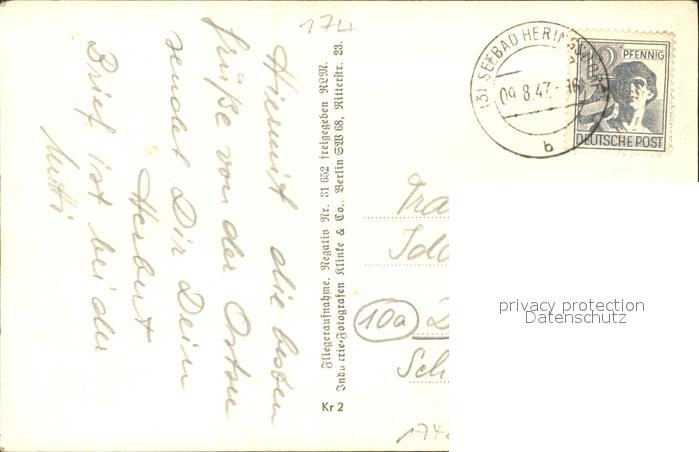 174
Hiermit die besten
Grüße von der Ostsee
sendet Dir Dein
Herbert
Brief ist bei der
Mutti
Fliegeraufnahme. Negativ Nr. 31 652 freigegeben RLM.
Industrie-Fotografen Klinke & Co., Berlin SW 68, Ritterstr. 23.
Kr 2
(3) SEEBAD HERINGS
09.8.47.-16
b
PFENNIG
DEUTSCHE POST
10a
Sch
privacy protection
Datenschutz